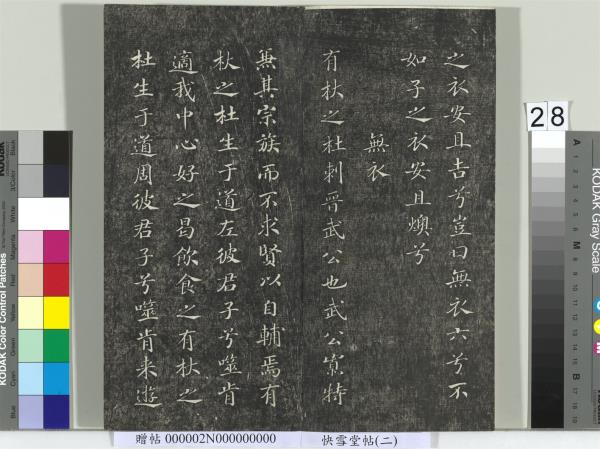 之衣安且吉兮豈曰無衣六兮不
如子之衣安且燠兮
無衣
有杕之杜刺晉武公也武公寡特
無其宗族而不求賢以自輔焉有
杕之杜生于道左彼君子兮噬肯
適我中心好之曷飲食之有杕之
杜生于道周彼君子兮噬肯来遊
28
贈帖 000002N000000000 快雪堂帖(二)
KODAK Color Control Patches
Blue
Cyan
Green
Yellow
Red
Magenta
White
3/Color
Black
KODAK Gray Scale
A 1 2 3 4 5 6 M 8 9 10 11 12 13 14 15 B 17 18 19
C
Y
M